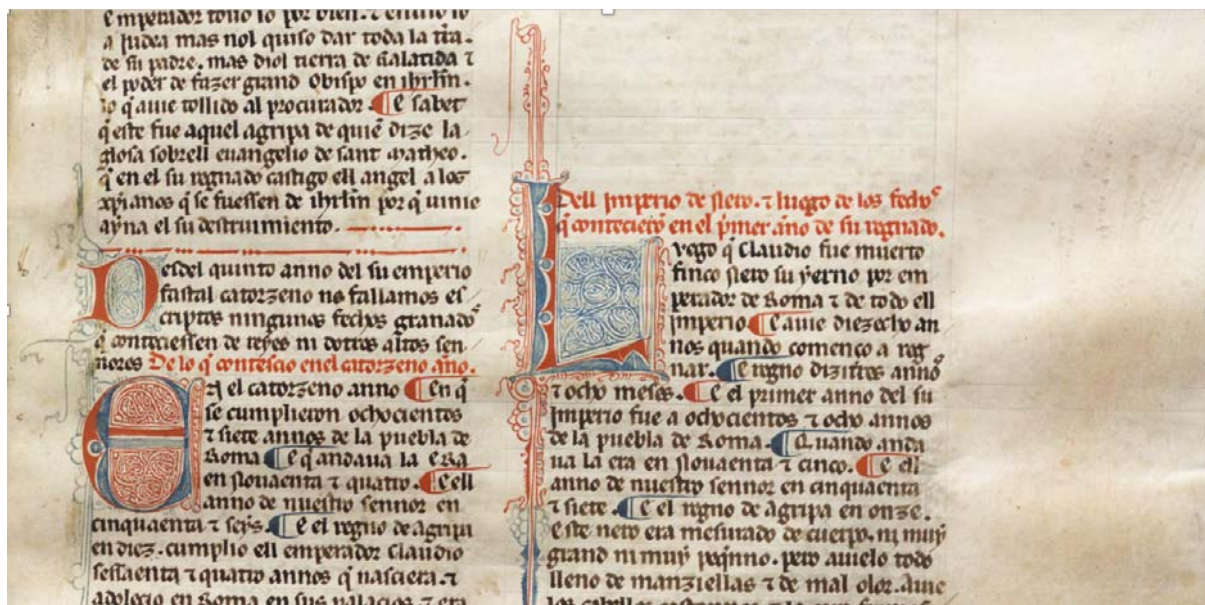 e mperador touo lo por bien. ⁊ enuio lo
a Judea mas nol quiso dar toda la tr̃a.
de su padre. mas diol tierra de Galatida ⁊
el poder de fazer grand Obispo en ihrl̃m.
lo q̃ auie tollido al procurador. ¶ E sabet
q̃ este fue aquel agripa de quiẽ dize la
glosa sobrell euangelio de sant Matheo.
q̃ en el su regnado castigo ell angel a los
xp̃ianos q̃ se fuessen de ihrl̃m por q̃ uinie
ayna el su destruimiento.
Desdel quinto anno del su emperio
fastal catorzeno no fallamos es
criptos ningunos fechos granados
q̃ conteciessen de reyes ni dotros altos sen
nores De lo q̃ contescio en el catorzeno año.
Era el catorzeno anno ¶ En q̃
se cumplieron ochocientos
⁊ siete annos de la puebla de
Roma ¶ E q̃ andaua la Era
en Nouaenta ⁊ quatro. ¶ E ell
anno de nuestro sennor en
cinquaenta ⁊ seys. ¶ E el regno de agripa
en diez. cumplio ell emperador Claudio
sessaenta ⁊ quatro annos q̃ nasciera. ⁊
adolecio en Roma en sus palacios ⁊ era
Dell Jmperio de Nero. ⁊ luego de los fechos
q̃ contecierõ en el p̃mer año de su regnado.
Luego q̃ Claudio fue muerto
finco Nero su yerno por em
perador de Roma ⁊ de todo ell
Jmperio ¶ E auie diezocho an
nos quando comenco a reg
nar. ¶ E regno diziseos annos
⁊ ocho meses. ¶ E el primer anno del su
Jmperio fue a ochocientos ⁊ ocho annos
de la puebla de Roma. ¶ Quando anda
ua la era en Nouaenta ⁊ cinco. ¶ E ell
anno de nuestro sennor en cinquaenta
⁊ siete. ¶ E el regno de Agripa en onze.
E ste nero era mesurado de cuerpo. ni muy
grand ni muy peq̃nno. pero auielo todo
lleno de manziellas ⁊ de mal olor. Auie
los cabellos